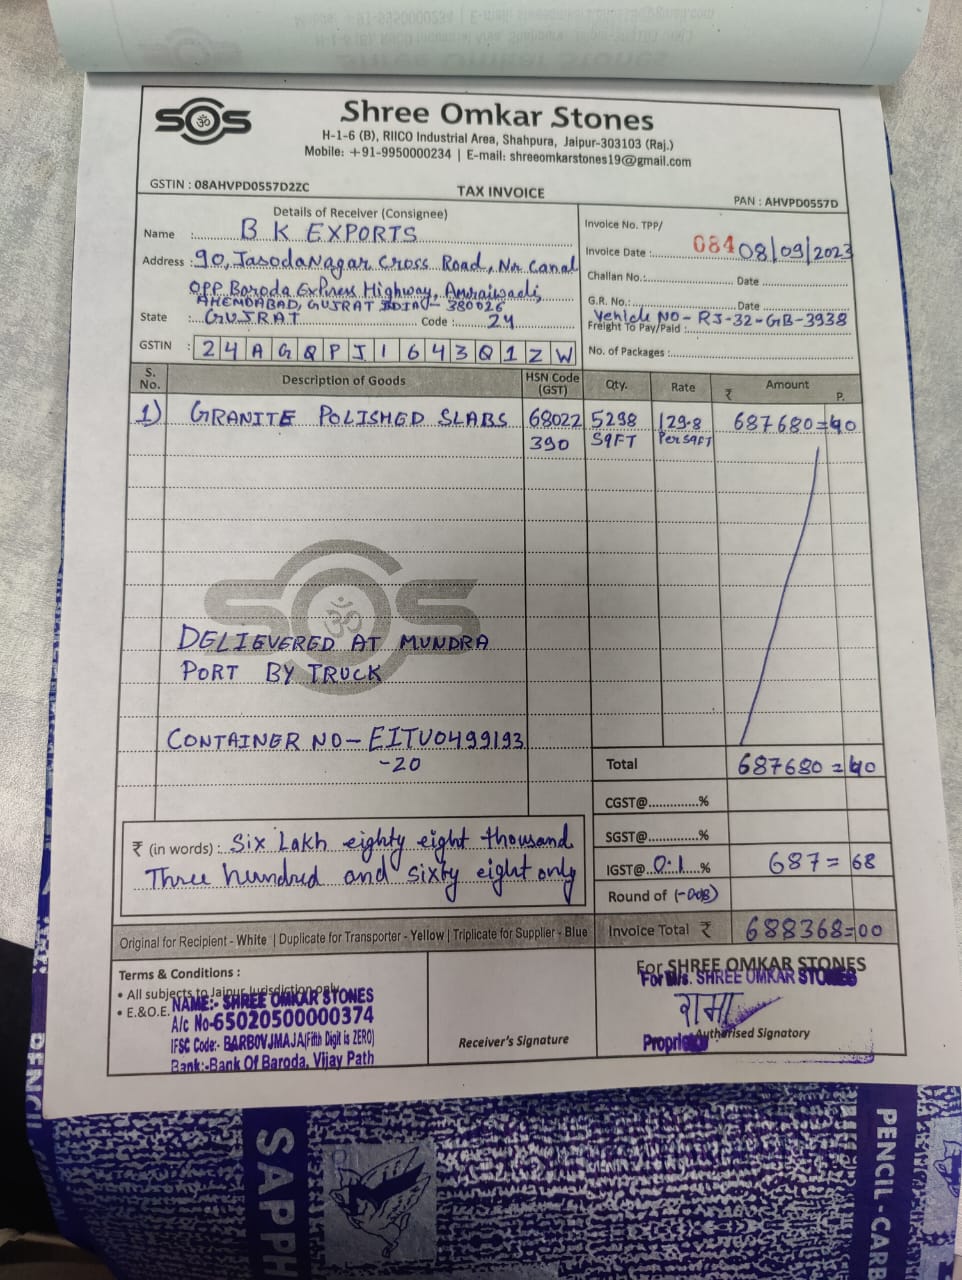 SOS
Shree Omkar Stones
H-1-6 (B), RIICO Industrial Area, Shahpura, Jaipur-303103 (Raj.)
Mobile: +91-9950000234 | E-mail: shreeomkarstones19@gmail.com
GSTIN : 08AHVPD0557D2ZC
TAX INVOICE
PAN : AHVPD0557D
Details of Receiver (Consignee)
Name : B K EXPORTS
Address : 90, Jasodanagar Cross Road, Nr Canal
OPP Baroda Express Highway, Amraiwadi,
AHEMDABAD, GUJRAT INDIA - 380026
State : GUJRAT Code : 24
GSTIN : 24AGQPJ1643Q1ZW
Invoice No. TPP/ 084
Invoice Date : 08/09/2023
Challan No.: Date
G.R. No.: Date
Vehicle NO - RJ-32-GB-3938
Freight To Pay/Paid :
No. of Packages :
S. No. Description of Goods HSN Code (GST) Qty. Rate Amount ₹ P.
1) GRANITE POLISHED SLABS 68022 5298 129.8 687680=40
390 SQFT Per SQFT
SOS
DELIEVERED AT MUNDRA
PORT BY TRUCK
CONTAINER NO - EITU0499193
-20
Total 687680=40
CGST@.............%
SGST@.............%
IGST@ 0.1 % 687=68
Round of (-008)
Invoice Total ₹ 688368=00
₹ (in words) : Six Lakh eighty eight thousand
Three hundred and sixty eight only
Original for Recipient - White | Duplicate for Transporter - Yellow | Triplicate for Supplier - Blue
Terms & Conditions :
• All subjects to Jaipur Jurisdiction only
• E.&O.E.
NAME:- SHREE OMKAR STONES
A/c No-65020500000374
IFSC Code:- BARB0VJMAJA(Fifth Digit is ZERO)
Bank:-Bank Of Baroda, Vijay Path
Receiver's Signature
For SHREE OMKAR STONES
For M/s. SHREE OMKAR STONES
रामा
Authorised Signatory
SAPPH
PENCIL-CARB
PENCIL